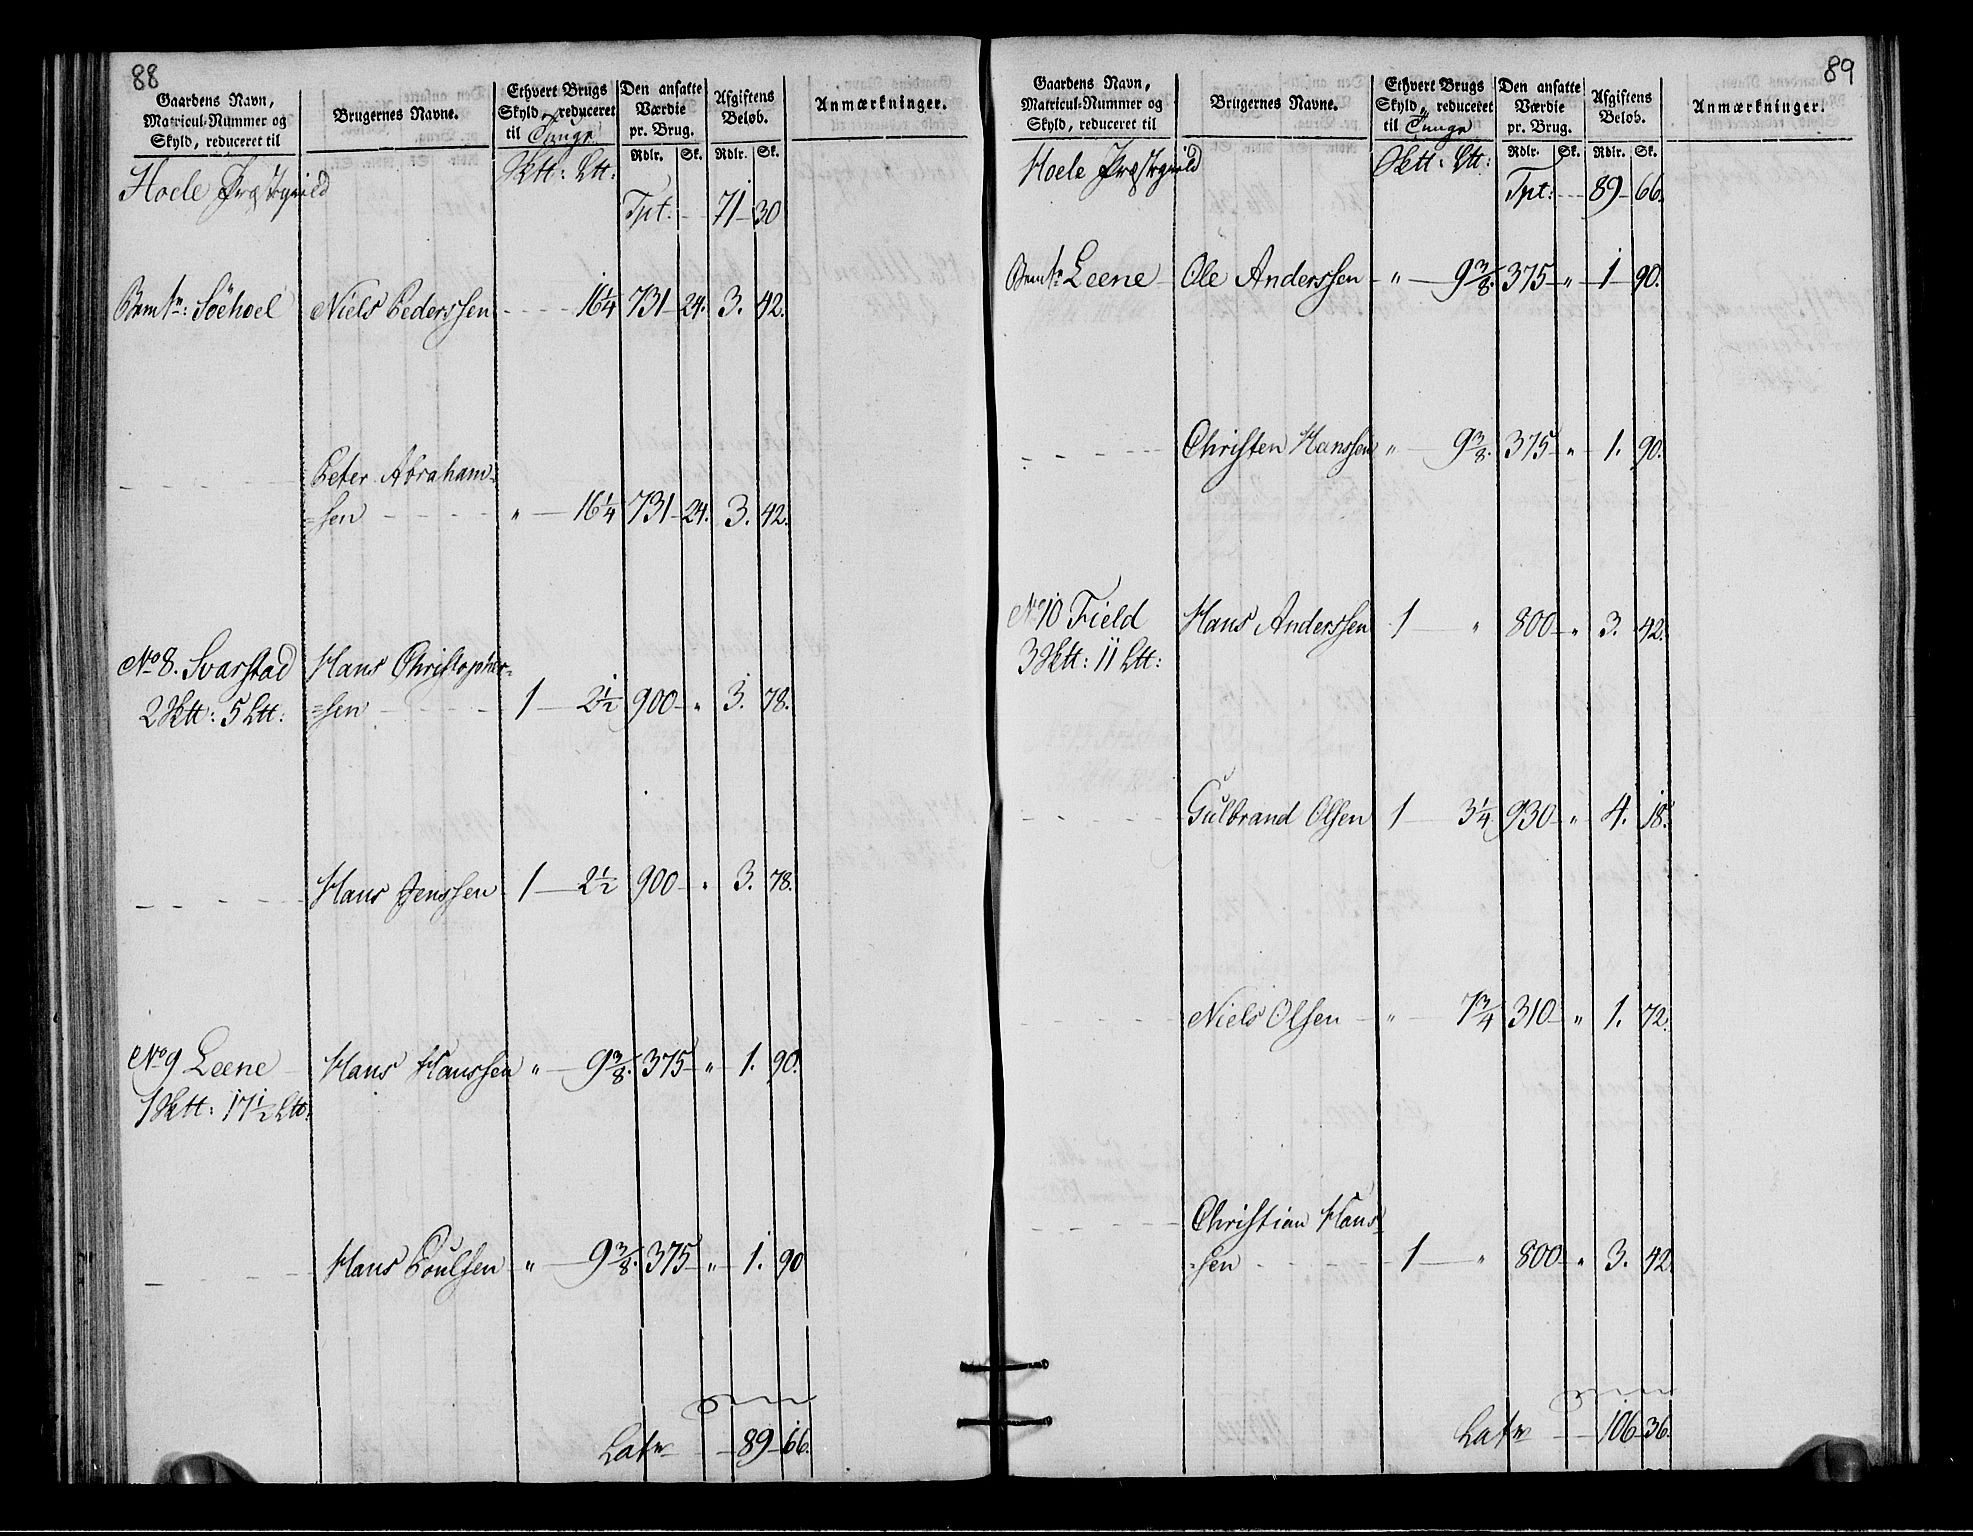 88
Gaardens Navn, Matricul-Nummer og Skyld, reduceret til
Brugernes Navne.
Ethvert Brugs Skyld, reduceret til Tunge
Den ansatte Værdie pr. Brug.
Afgiftens Beløb.
Anmærkninger.
Rdlr. Sk. Rdlr. Sk.
Hoele Præstegield Sktt: Ltt:
Tpt: 71 30
Bemte: Söehoel Niels Pederssen 16¼ 731 24. 3. 42.
Peter Abraham-
=sen " 16¼ 731 24. 3. 42.
No 8. Svarstad Hans Christopher-
2 Sktt: 5 Ltt: =sen 1 2½ 900 " 3. 78.
Hans Jenssen 1 2½ 900 " 3. 78.
No 9 Leene Hans Hanssen " 9⅜. 375 " 1. 90.
1 Sktt: 17½ Ltt:
Hans Poulsen " 9⅜. 375 " 1. 90
Lats 89 66.
89
Gaardens Navn, Matricul-Nummer og Skyld, reduceret til
Brugernes Navne.
Ethvert Brugs Skyld, reduceret til Tunge
Den ansatte Værdie pr. Brug.
Afgiftens Beløb.
Anmærkninger.
Rdlr. Sk. Rdlr. Sk.
Hoele Præstegield Sktt: Ltt:
Tpt: 89 66.
Bemte Leene Ole Anderssen " 9⅜. 375 " 1 90.
Christen Hanssen " 9⅜. 375 " 1. 90.
No 10 Field Hans Anderssen 1 " 800 " 3. 42.
3 Sktt: 11 Ltt:
Gulbrand Olsen 1 3¼ 930 " 4. 18.
Niels Olsen " 7¾ 310 " 1. 72.
Christian Hans-
=sen 1 " 800 " 3. 42.
Lats 106 36.